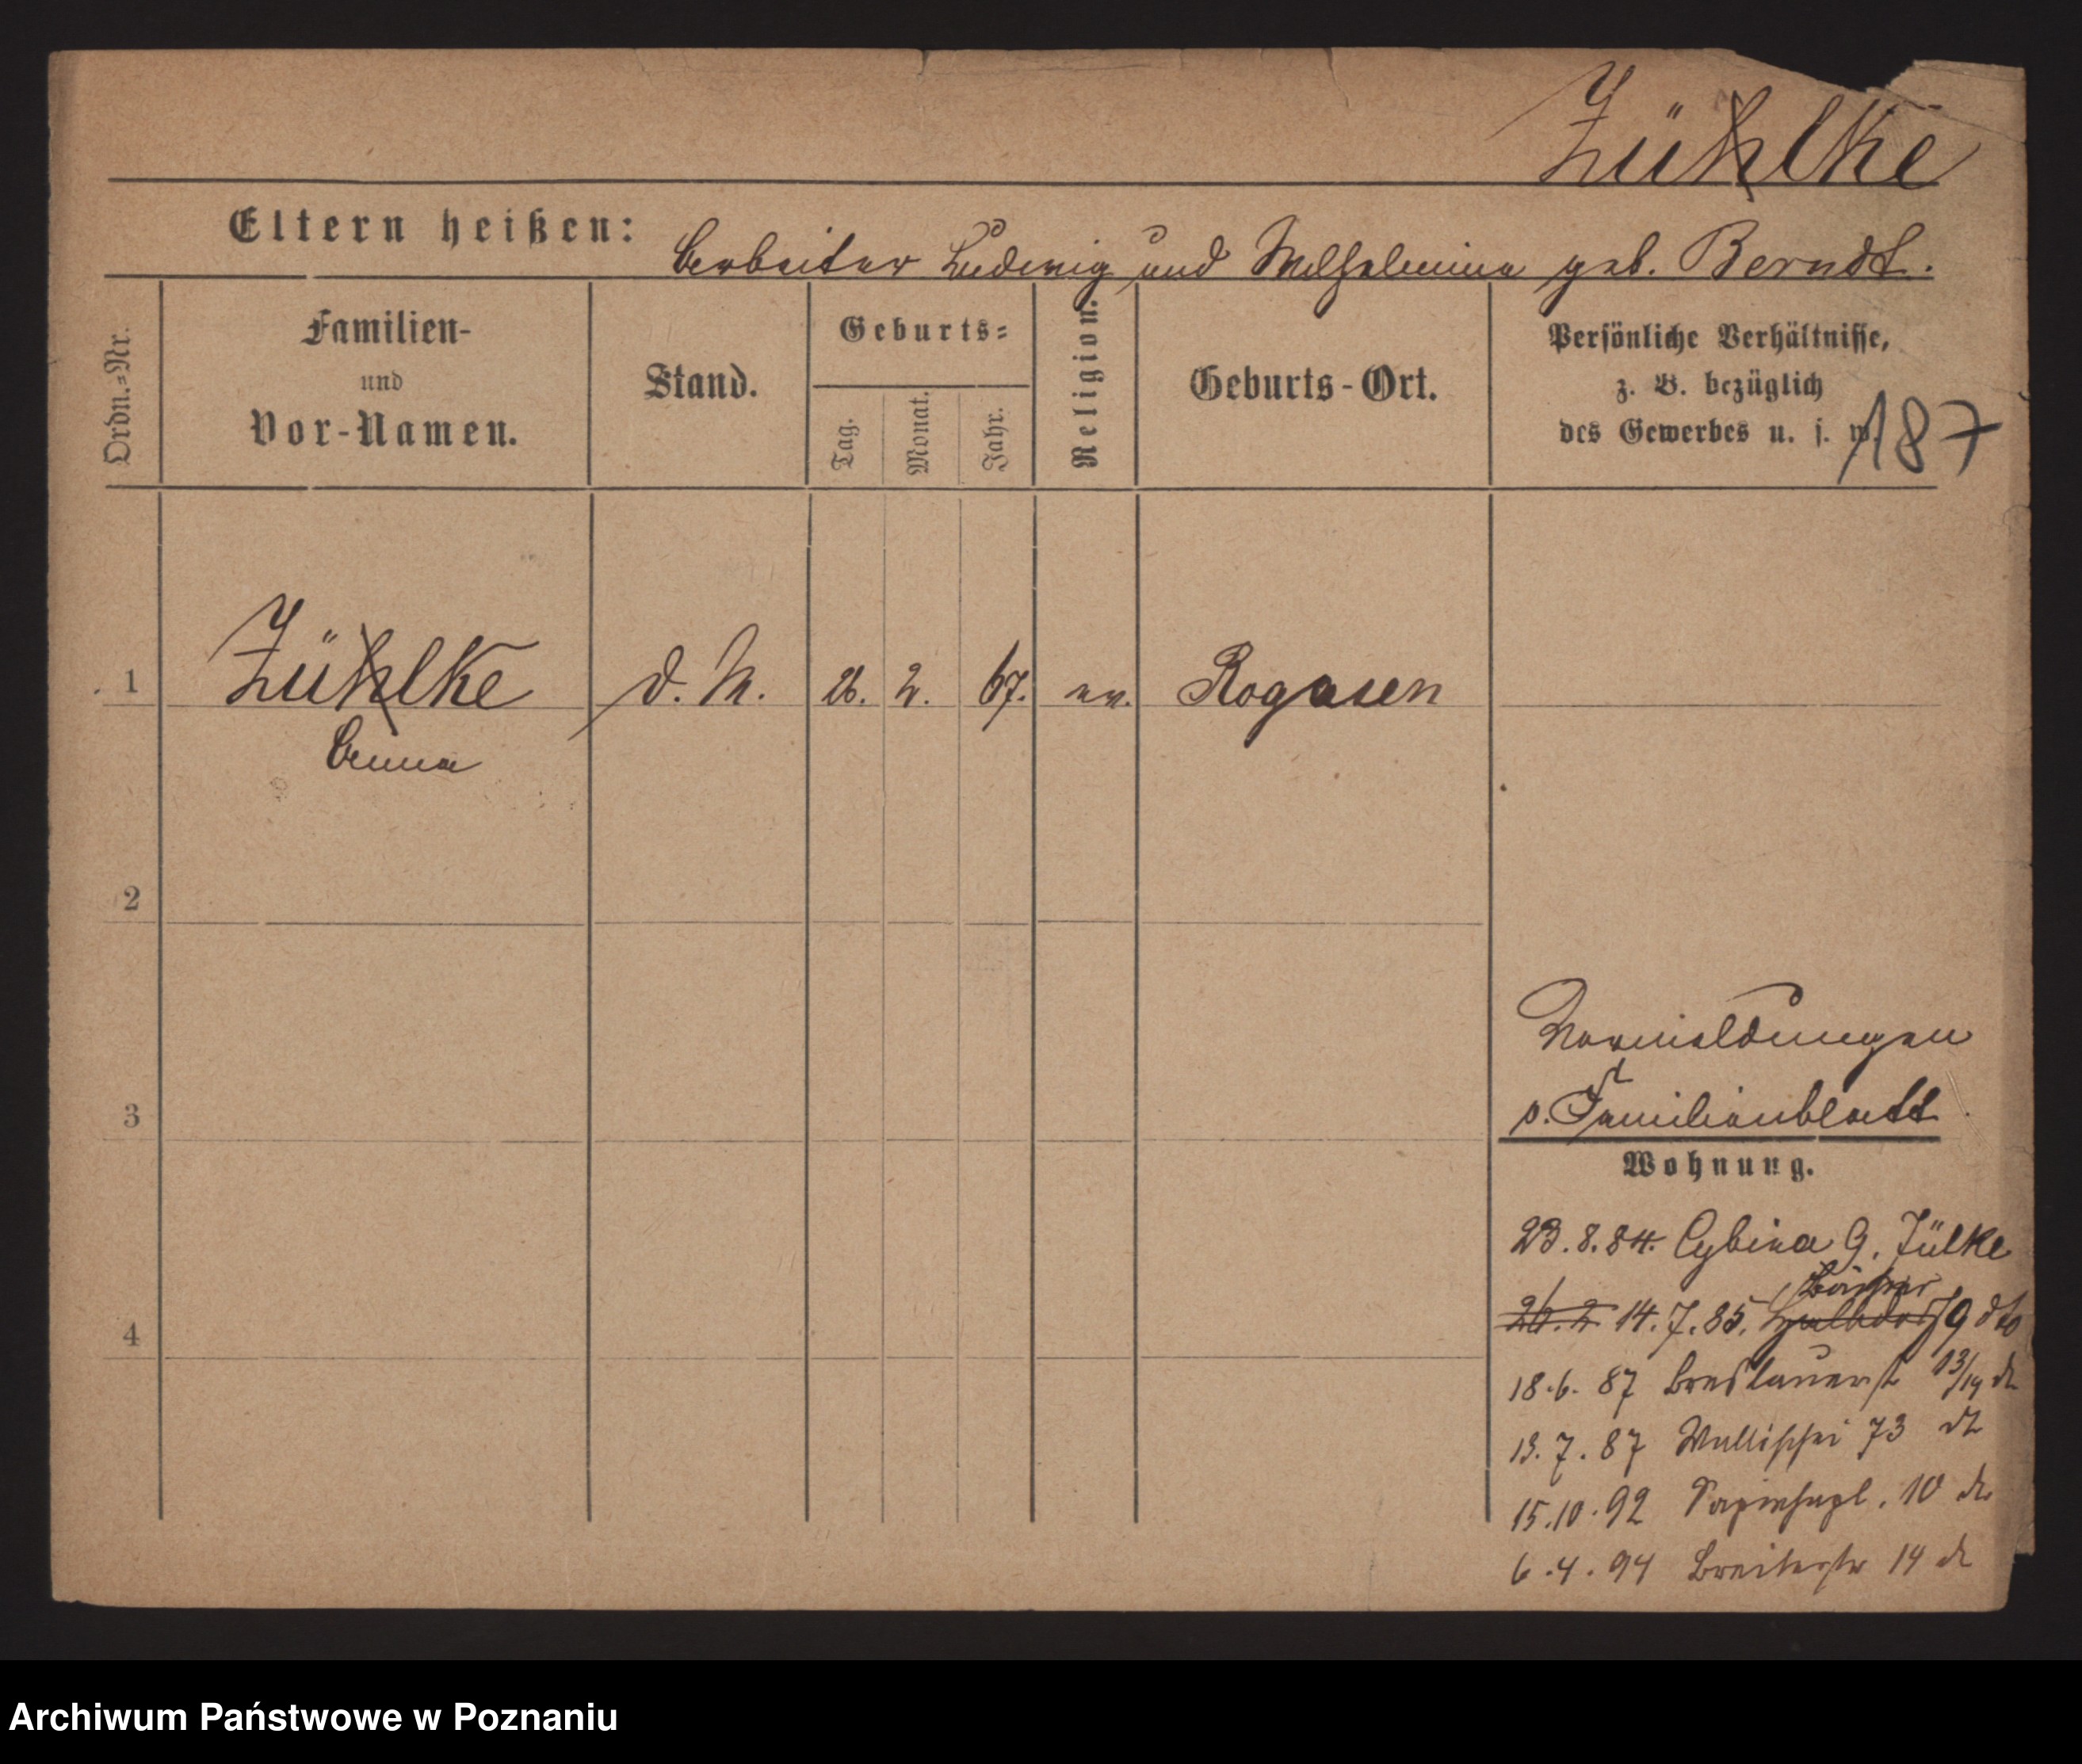 Zühlke
Eltern heißen: Arbeiter Ludwig und Wilhelmine geb. Berndt.
Ordn.=Nr.
Familien-
und
Vor-Namen.
Stand.
Geburts=
Tag.
Monat.
Jahr.
Religion.
Geburts-Ort.
Persönliche Verhältnisse,
z. B. bezüglich
des Gewerbes u. s. w.
187
1 Zühlke d. M. 26. 2. 67. ev. Rogasen
Anna
2
3
4
Vormeldungen
s. Familienblatt
Wohnung.
23.8.84. Cybina 9. Jülke
26.2 14.7.85. 9 dto
18.6.87 Breslauerst 13/14 dt
13.7.87 Wallischei 73 dt
15.10.92 Sapiehapl. 10 do
6.4.94 Breitestr 14 do
Archiwum Państwowe w Poznaniu